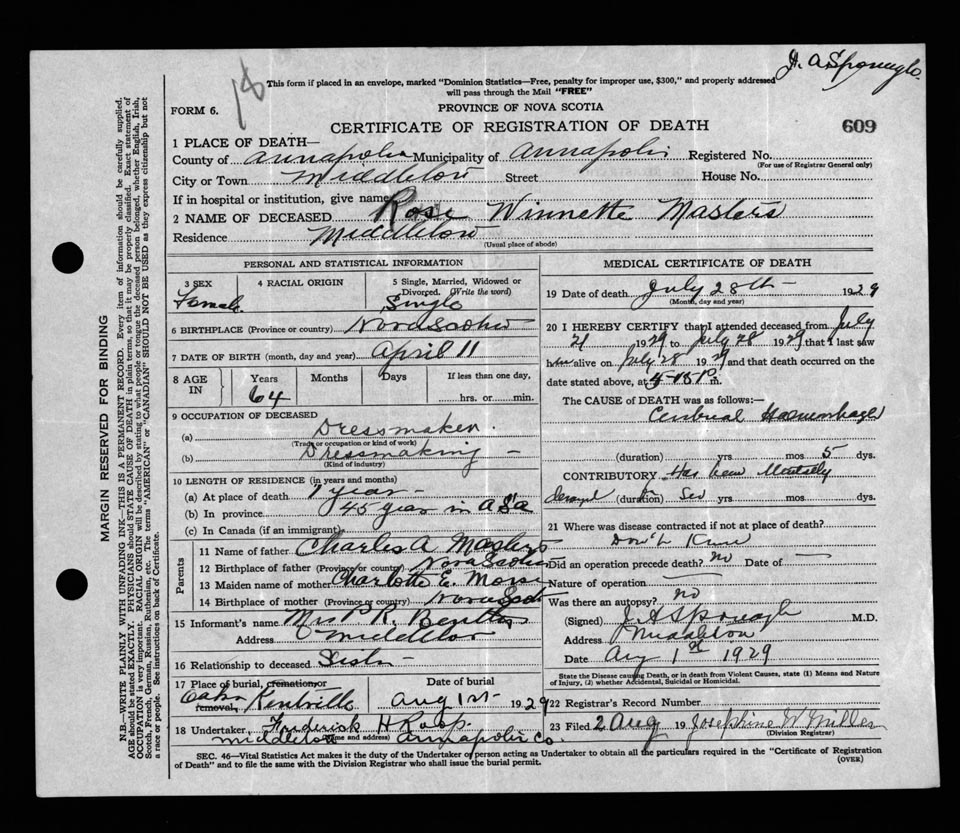 J. A. Sponagle.
18
This form if placed in an envelope, marked "Dominion Statistics—Free, penalty for improper use, $300," and properly addressed
will pass through the Mail "FREE"
FORM 6.
PROVINCE OF NOVA SCOTIA
CERTIFICATE OF REGISTRATION OF DEATH
609
1 PLACE OF DEATH—
County of Annapolis Municipality of Annapolis Registered No.
(For use of Registrar General only)
City or Town Middleton Street House No.
If in hospital or institution, give name
2 NAME OF DECEASED Rose Winnette Masters
Residence Middleton
(Usual place of abode)
PERSONAL AND STATISTICAL INFORMATION
3 SEX 4 RACIAL ORIGIN 5 Single, Married, Widowed or
Divorced. (Write the word)
Female Single
6 BIRTHPLACE (Province or country) Nova Scotia
7 DATE OF BIRTH (month, day and year) April 11
8 AGE IN Years Months Days If less than one day,
64 hrs. or min.
9 OCCUPATION OF DECEASED
(a) Dressmaker.
(Trade or occupation or kind of work)
(b) Dressmaking —
(Kind of industry)
10 LENGTH OF RESIDENCE (in years and months)
(a) At place of death 1 year —
(b) In province 45 years in
(c) In Canada (if an immigrant)
Parents
11 Name of father Charles A Masters
12 Birthplace of father (Province or country) Nova Scotia
13 Maiden name of mother Charlotte E. Morse
14 Birthplace of mother (Province or country) Nova Scotia
15 Informant's name Mrs K.
Address Middleton
16 Relationship to deceased Sister —
17 Place of burial, cremation or Date of burial
removal, Oaks Kentville Aug 1st 1929
18 Undertaker, Frederick H Roop.
(Name and address)
Middleton Annapolis Co.
MEDICAL CERTIFICATE OF DEATH
19 Date of death July 28th — 1929
(Month, day and year)
20 I HEREBY CERTIFY that I attended deceased from July
21 1929 to July 28 1929 that I last saw
her alive on July 28 1929 and that death occurred on
date stated above, at m.
The CAUSE OF DEATH was as follows:—
Cerebral Haemorrhage
(duration) yrs mos 5 dys.
CONTRIBUTORY Has been Mentally
deranged (duration) for Sev yrs mos dys.
21 Where was disease contracted if not at place of death?
Don't Know
Did an operation precede death? No Date of —
Nature of operation —
Was there an autopsy? no
(Signed) J. A. Sponagle M.D.
Address Middleton
Date Aug 1st 1929
State the Disease causing Death, or in death from Violent Causes, state (1) Means and Nature
of Injury, (2) whether Accidental, Suicidal or Homicidal.
22 Registrar's Record Number
23 Filed 2 Aug 19 Josephine W. Miller
(Division Registrar)
SEC. 46—Vital Statistics Act makes it the duty of the Undertaker or person acting as Undertaker to obtain all the particulars required in the "Certificate of Registration
of Death" and to file the same with the Division Registrar who shall issue the burial permit.
(OVER)
MARGIN RESERVED FOR BINDING
N.B.—WRITE PLAINLY WITH UNFADING INK—THIS IS A PERMANENT RECORD. Every item of information should be carefully supplied.
AGE should be stated EXACTLY. PHYSICIANS should STATE CAUSE OF DEATH in plain terms, so that it may be properly classified. Exact statement of
OCCUPATION is very important. RACIAL ORIGIN will be described by stating to what people or tongue the deceased person belonged, whether English, Irish,
Scotch, French, German, Russian, Ruthenian, etc. The terms "AMERICAN" or "CANADIAN" SHOULD NOT BE USED as they express citizenship but not
a race or people. See instructions on back of Certificate.